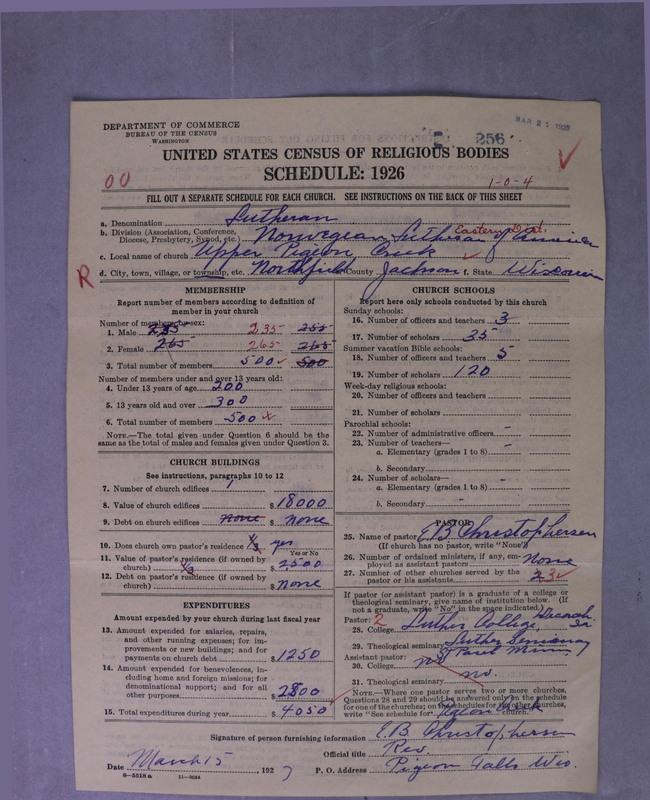 DEPARTMENT OF COMMERCE
BUREAU OF THE CENSUS
WASHINGTON
MAR 21 1927
256
UNITED STATES CENSUS OF RELIGIOUS BODIES
SCHEDULE: 1926
00
1-0-4
FILL OUT A SEPARATE SCHEDULE FOR EACH CHURCH. SEE INSTRUCTIONS ON THE BACK OF THIS SHEET
a. Denomination Lutheran
Eastern Dist.
b. Division (Association, Conference, Diocese, Presbytery, Synod, etc.) Norwegian Lutheran of America
c. Local name of church Upper Pigeon Creek
R
d. City, town, village, or township, etc. Northfield County Jackson f. State Wisconsin
MEMBERSHIP
Report number of members according to definition of
member in your church
Number of members by sex:
1. Male 235 235
2. Female 265 265 265
3. Total number of members 500 500
Number of members under and over 13 years old:
4. Under 13 years of age 200
5. 13 years old and over 300
6. Total number of members 500 x
NOTE.—The total given under Question 6 should be the
same as the total of males and females given under Question 3.
CHURCH BUILDINGS
See instructions, paragraphs 10 to 12
7. Number of church edifices 1
8. Value of church edifices $ 18000
9. Debt on church edifices None $ None
10. Does church own pastor's residence 1/3 yes
Yes or No
11. Value of pastor's residence (if owned by
church) 1/3 $ 2500
12. Debt on pastor's residence (if owned by
church) $ None
EXPENDITURES
Amount expended by your church during last fiscal year
13. Amount expended for salaries, repairs,
and other running expenses; for im-
provements or new buildings; and for
payments on church debt $ 1250
14. Amount expended for benevolences, in-
cluding home and foreign missions; for
denominational support; and for all
other purposes $ 2800
15. Total expenditures during year $ 4050
CHURCH SCHOOLS
Report here only schools conducted by this church
Sunday schools:
16. Number of officers and teachers 3
17. Number of scholars 35
Summer vacation Bible schools:
18. Number of officers and teachers 5
19. Number of scholars 120
Week-day religious schools:
20. Number of officers and teachers
21. Number of scholars
Parochial schools:
22. Number of administrative officers -
23. Number of teachers—
a. Elementary (grades 1 to 8) -
b. Secondary
24. Number of scholars—
a. Elementary (grades 1 to 8) -
b. Secondary -
PASTOR
25. Name of pastor E B Christophersen
(If church has no pastor, write "None")
26. Number of ordained ministers, if any, em-
ployed as assistant pastors None
27. Number of other churches served by the
pastor or his assistants 3
If pastor (or assistant pastor) is a graduate of a college or
theological seminary, give name of institution below. (If
not a graduate, write "No" in the space indicated.)
Pastor: 2
28. College Luther College, Decorah Ia
29. Theological seminary Luther Seminary
St Paul Minn
Assistant pastor:
30. College no
31. Theological seminary no.
NOTE.—Where one pastor serves two or more churches,
Questions 28 and 29 should be answered only on the schedule
for one of the churches; on the schedules for the other churches,
write "See schedule for Pigeon Creek church."
Signature of person furnishing information E.B. Christophersen
Official title Rev.
Date March 15, 1927 P. O. Address Pigeon Falls Wis.
6-5518 a